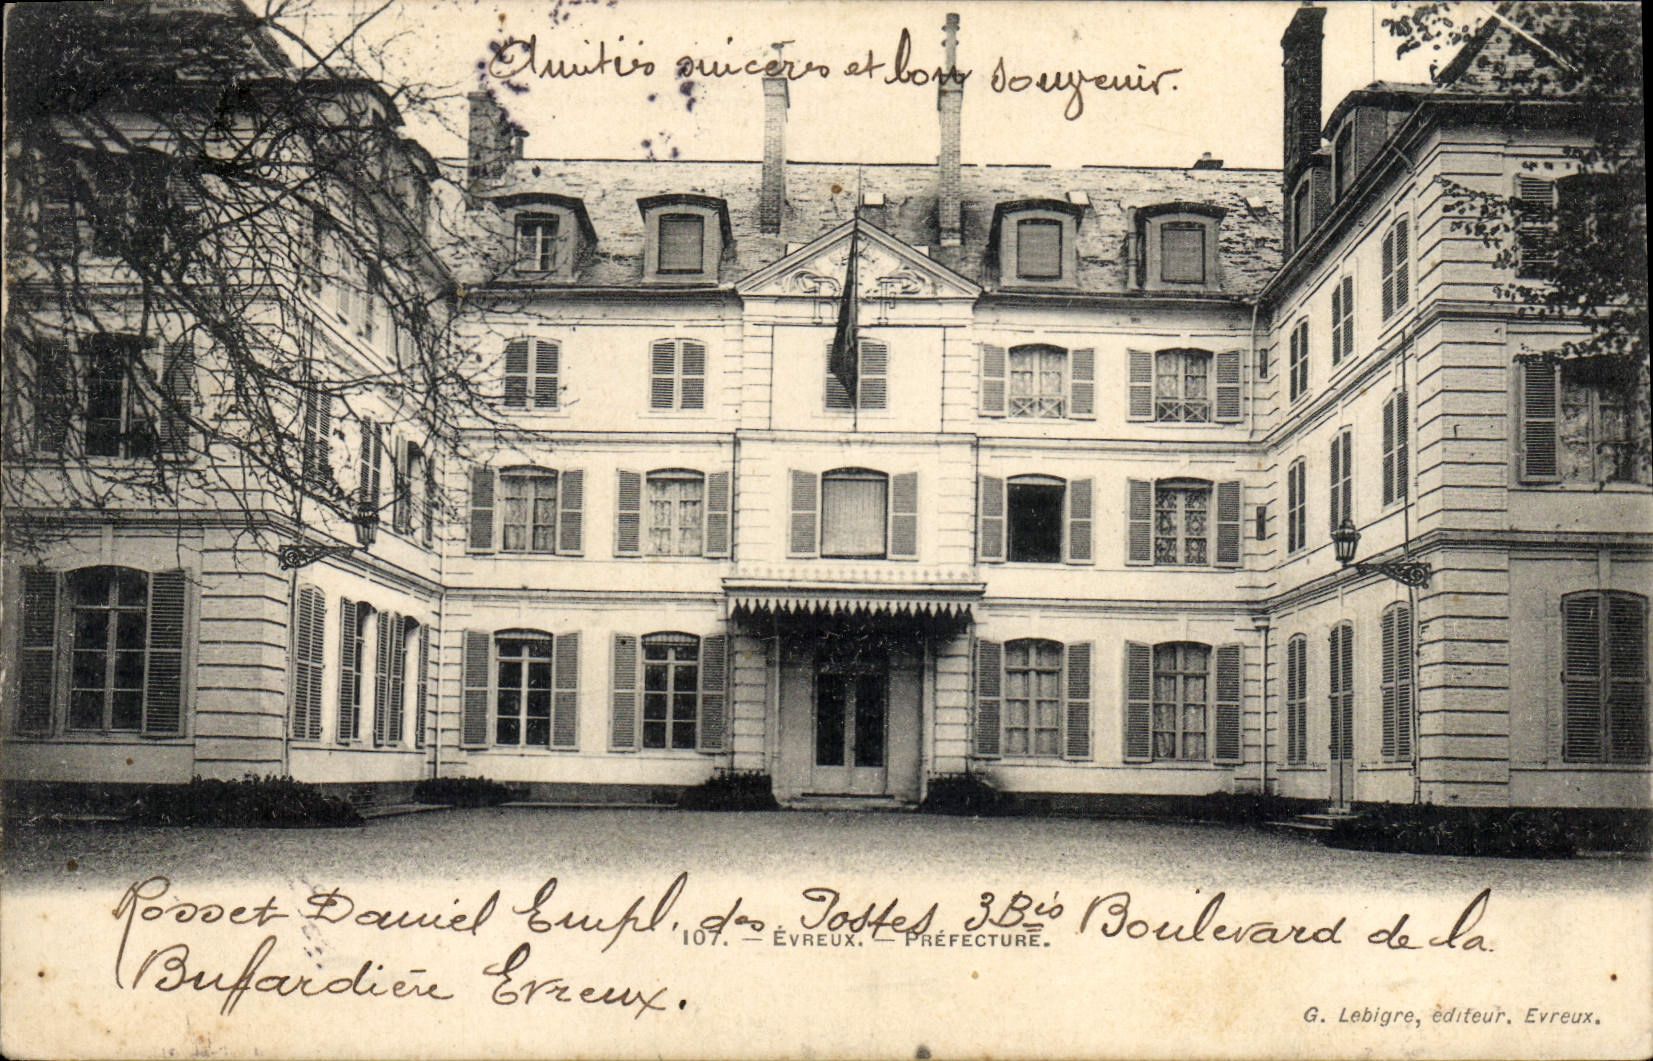 Amitiés sincères et bon souvenir.
R F
Rosset Daniel Empl. des Postes 3 Bis Boulevard de la
107. — ÉVREUX. — PRÉFECTURE.
Buffardière Evreux.
G. Lebigre, éditeur, Evreux.